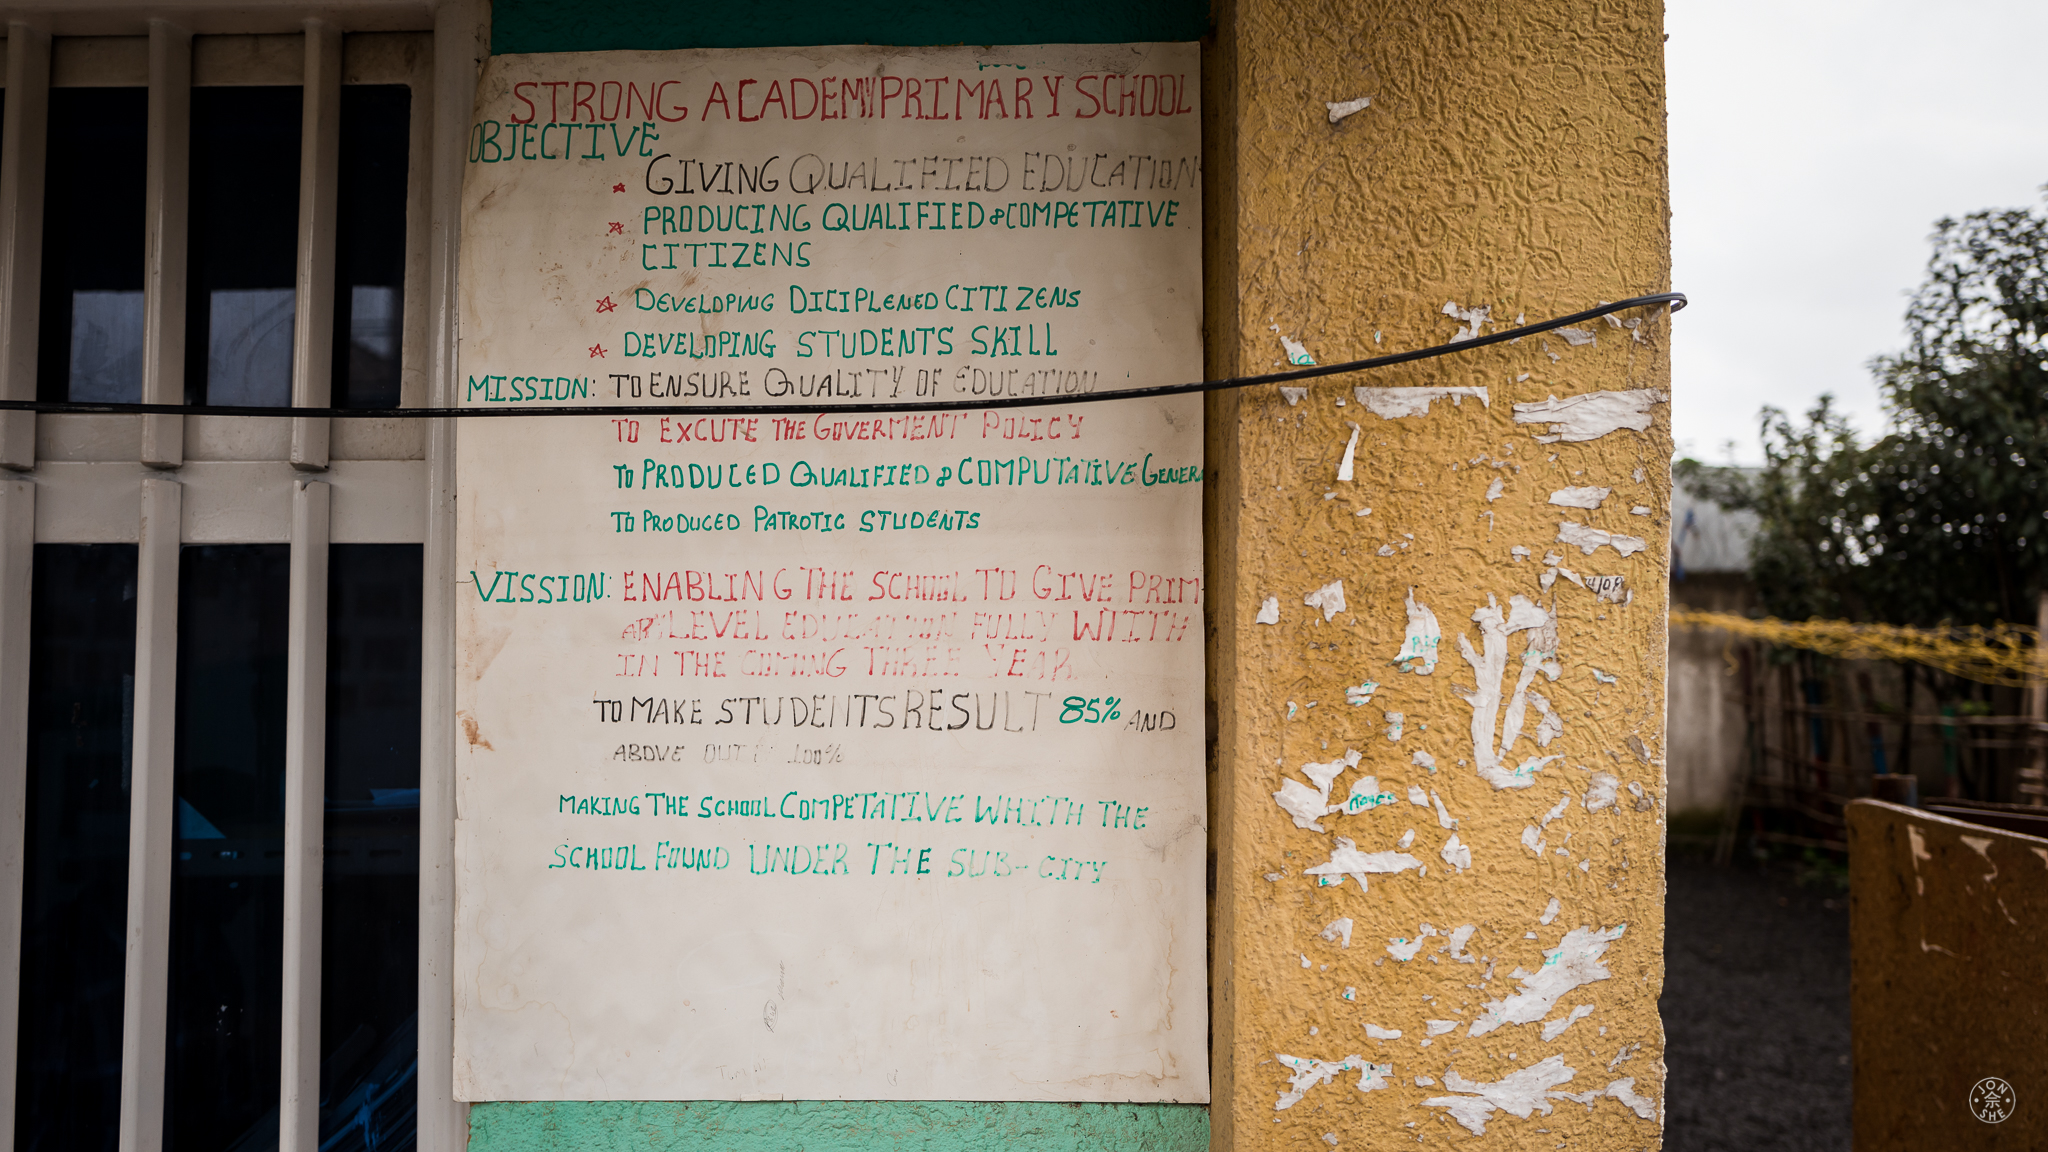 STRONG ACADEMY PRIMARY SCHOOL
OBJECTIVE
GIVING QUALIFIED EDUCATION
PRODUCING QUALIFIED & COMPETATIVE
CITIZENS
DEVELOPING DICIPLENED CITIZENS
DEVELOPING STUDENTS SKILL
MISSION: TO ENSURE QUALITY OF EDUCATION
TO EXCUTE THE GOVERMENT POLICY
TO PRODUCED QUALIFIED & COMPUTATIVE GENERA
TO PRODUCED PATROTIC STUDENTS
VISSION: ENABLING THE SCHOOL TO GIVE PRIM-
ARY LEVEL EDUCATION FULLY WITH
IN THE COMING THREE YEAR
TO MAKE STUDENTS RESULT 85% AND
ABOVE OUT 100%
MAKING THE SCHOOL COMPETATIVE WHITH THE
SCHOOL FOUND UNDER THE SUB-CITY
JON
SHE